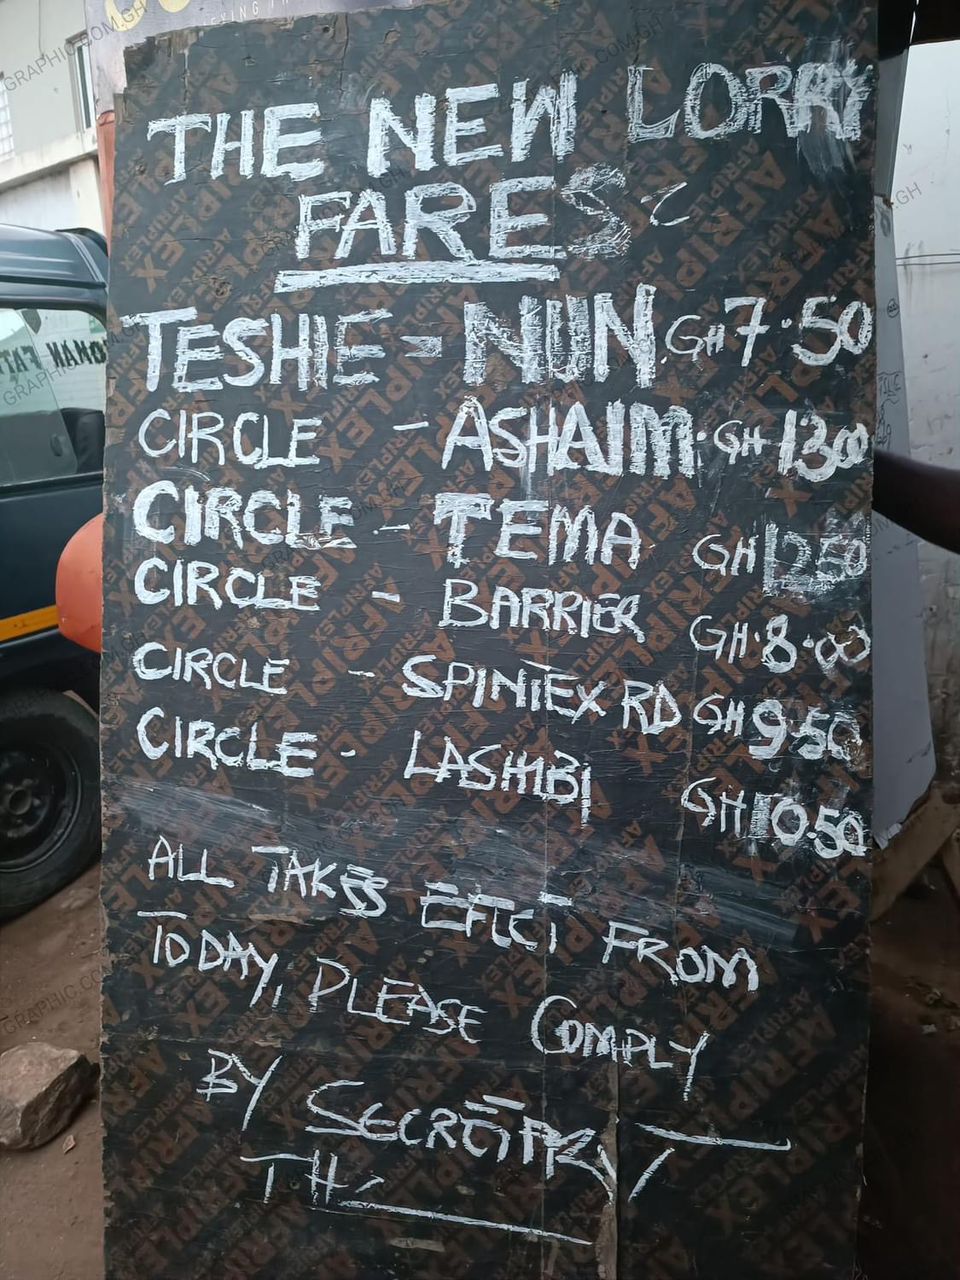 THE NEW LORRY
FARES
TESHIE - NUN. GH 7.50
CIRCLE - ASHAIM. GH 13.00
CIRCLE - TEMA GH 12.50
CIRCLE - BARRIER GH.8.00
CIRCLE - SPINTEX RD GH 9.50
CIRCLE - LASHIBI GH 10.50
ALL TAKES EFFCT FROM
TODAY, PLEASE COMPLY
BY SECRETARY
THE
GRAPHIC.COM.GH
AFRIPLEX